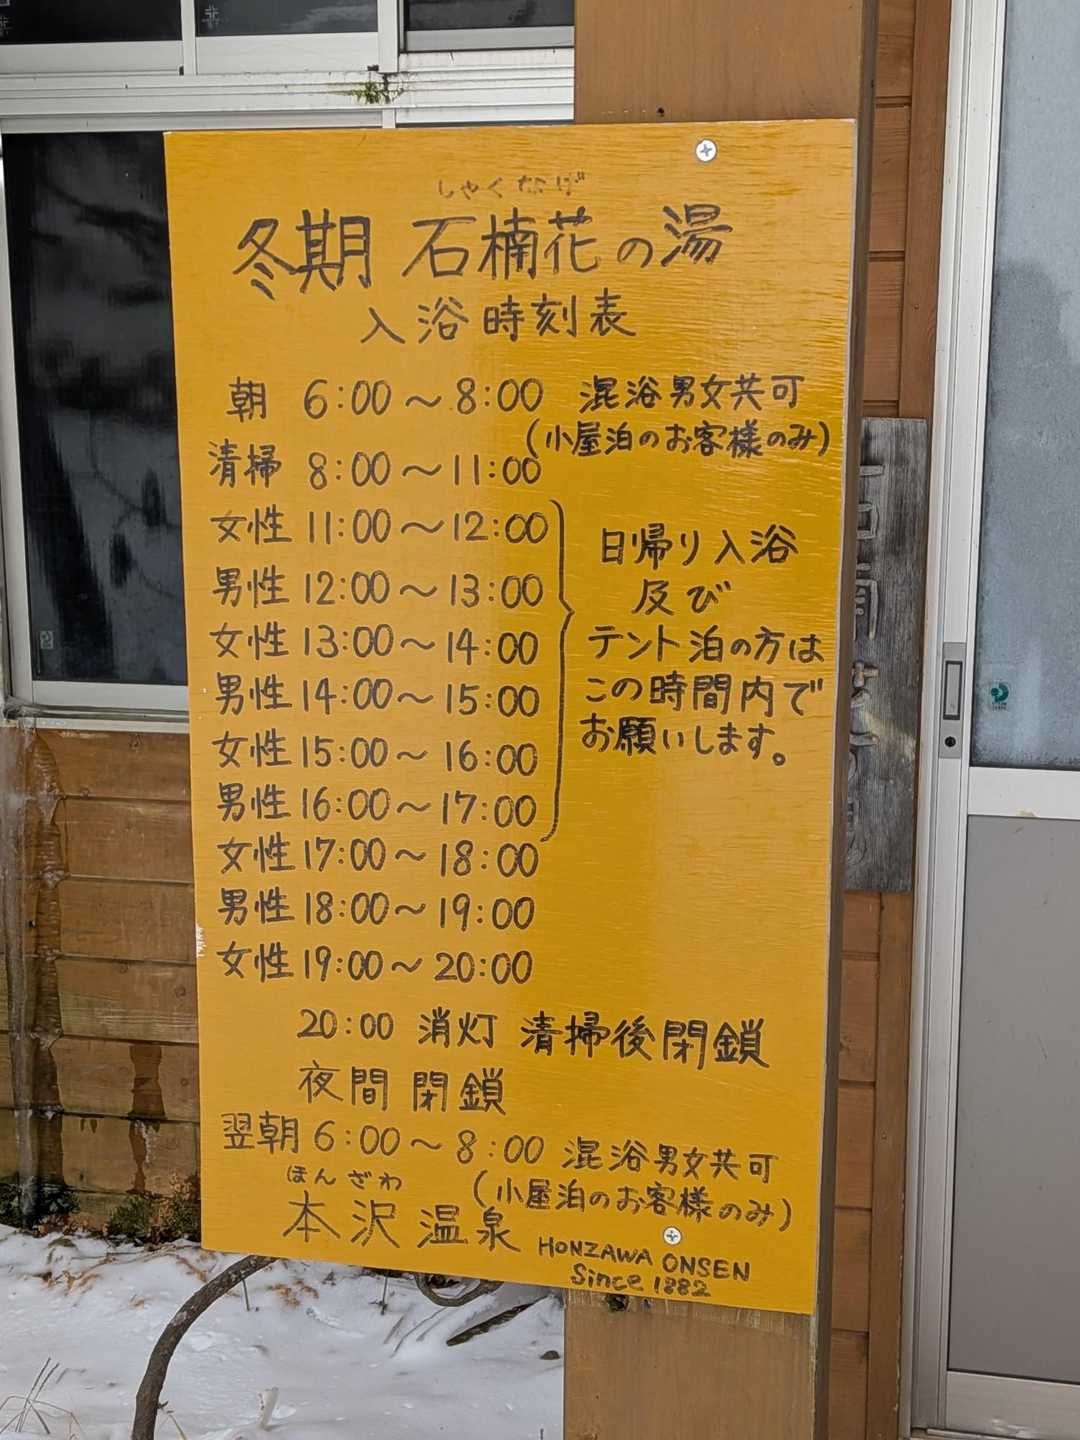 しゃくなげ
冬期 石楠花の湯
入浴時刻表
朝 6:00～8:00 混浴男女共可
(小屋泊のお客様のみ)
清掃 8:00～11:00
女性 11:00～12:00
男性 12:00～13:00
女性 13:00～14:00
男性 14:00～15:00
女性 15:00～16:00
男性 16:00～17:00
日帰り入浴
及び
テント泊の方は
この時間内で
お願いします。
女性 17:00～18:00
男性 18:00～19:00
女性 19:00～20:00
20:00 消灯 清掃後閉鎖
夜間 閉鎖
翌朝 6:00～8:00 混浴男女共可
(小屋泊のお客様のみ)
ほんざわ
本沢温泉 HONZAWA ONSEN
Since 1882